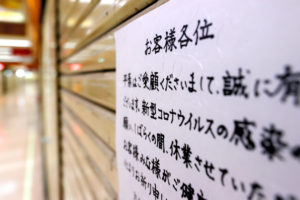 お客様各位
平素はご愛顧くださいまして、誠に有
新型コロナウイルスの感染
願い、しばらくの間、休業させていた
お客様みな様がご健
お祈り申し